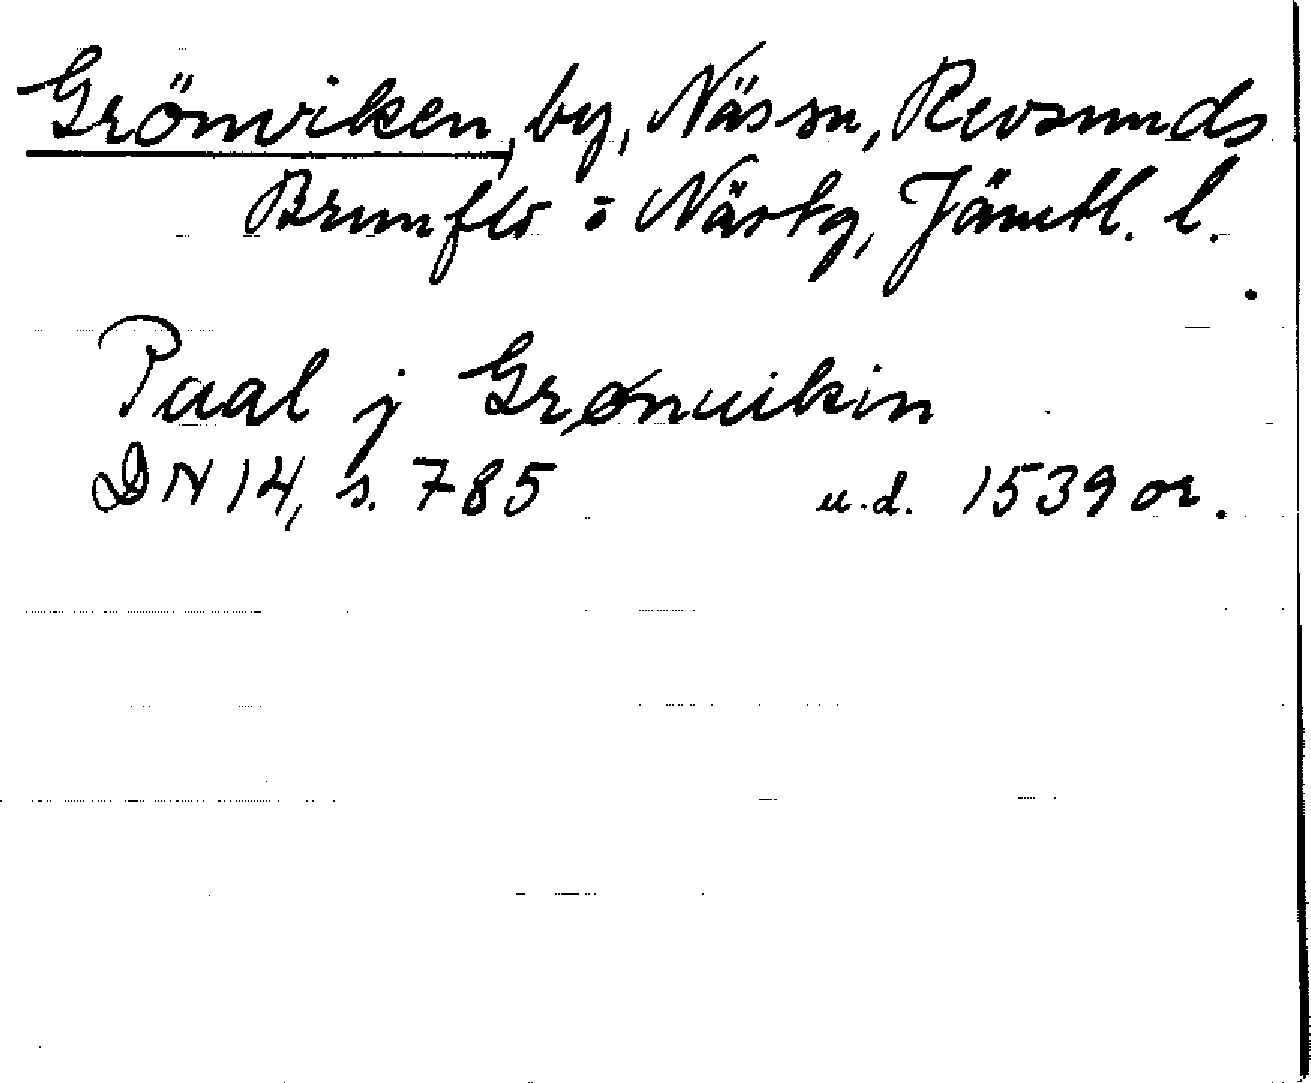 Grönviken, by, Näs sn, Revsunds
Brunflo o Näs tg, Jämtl. l.
Paal j Grønuikin
DN 14, s. 785 u.d. 1539 or.